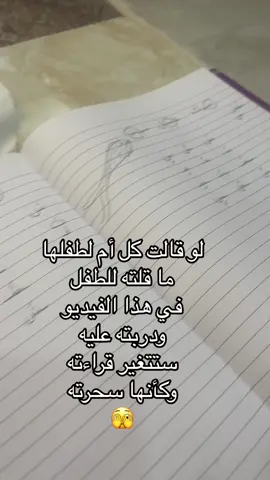 لو قالت كل أم لطفلها
ما قلته للطفل
في هذا الفيديو
ودربته عليه
ستتغير قراءته
وكأنها سحرته
🫣